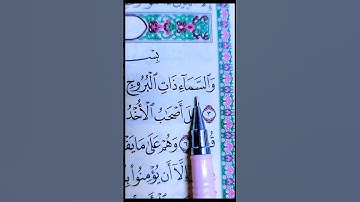 بِسْ
وَالسَّمَآءِ ذَاتِ الْبُرُوجِ
أَصْحَابُ الْأُخْدُ
وَهُمْ عَلَىٰ مَا يَفْ
إِلَّآ أَن يُؤْمِنُوا۟ بِ